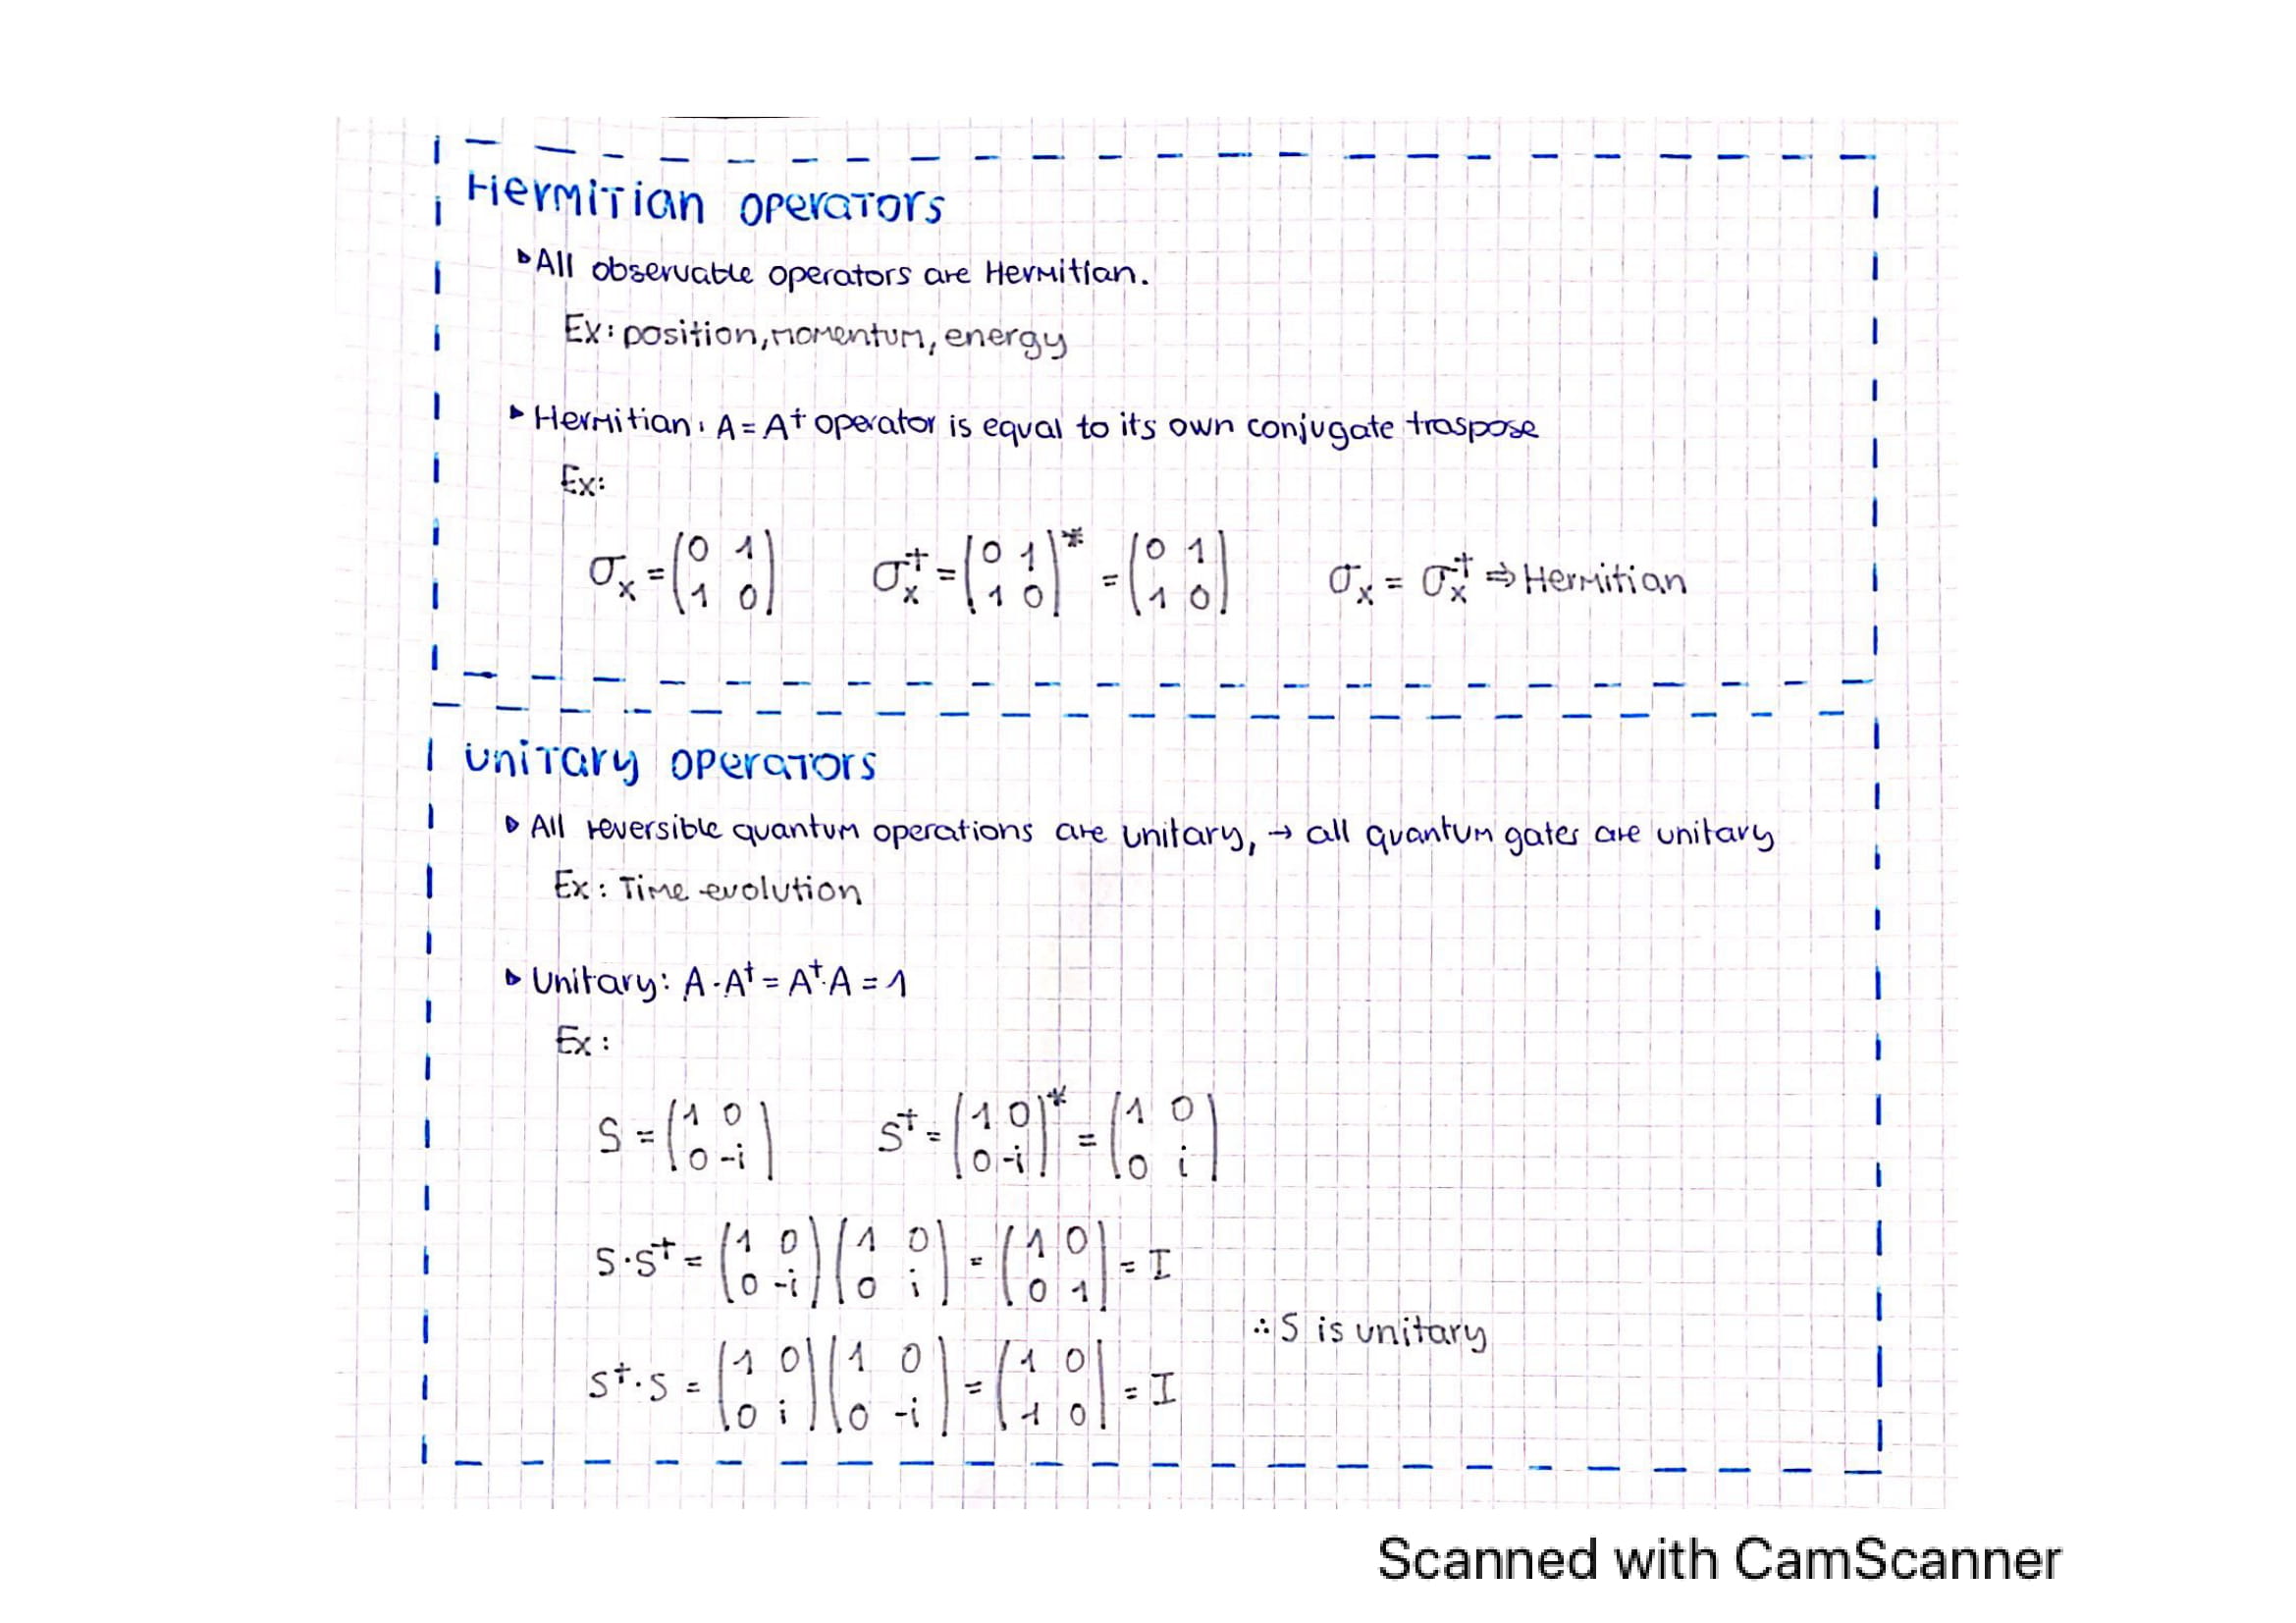 Hermitian operators
▸All observable operators are Hermitian.
Ex: position, momentum, energy
▸Hermitian: A = A† operator is equal to its own conjugate traspose
Ex:
σx = (0 1 / 1 0) σx† = (0 1 / 1 0)* = (0 1 / 1 0) σx = σx† ⇒ Hermitian
unitary operators
▸All reversible quantum operations are unitary, → all quantum gates are unitary
Ex: Time evolution
▸Unitary: A·A† = A†·A = 1
Ex:
S = (1 0 / 0 -i) S† = (1 0 / 0 -i)* = (1 0 / 0 i)
S·S† = (1 0 / 0 -i)(1 0 / 0 i) = (1 0 / 0 1) = I
∴ S is unitary
S†·S = (1 0 / 0 i)(1 0 / 0 -i) = (1 0 / 1 0) = I
Scanned with CamScanner